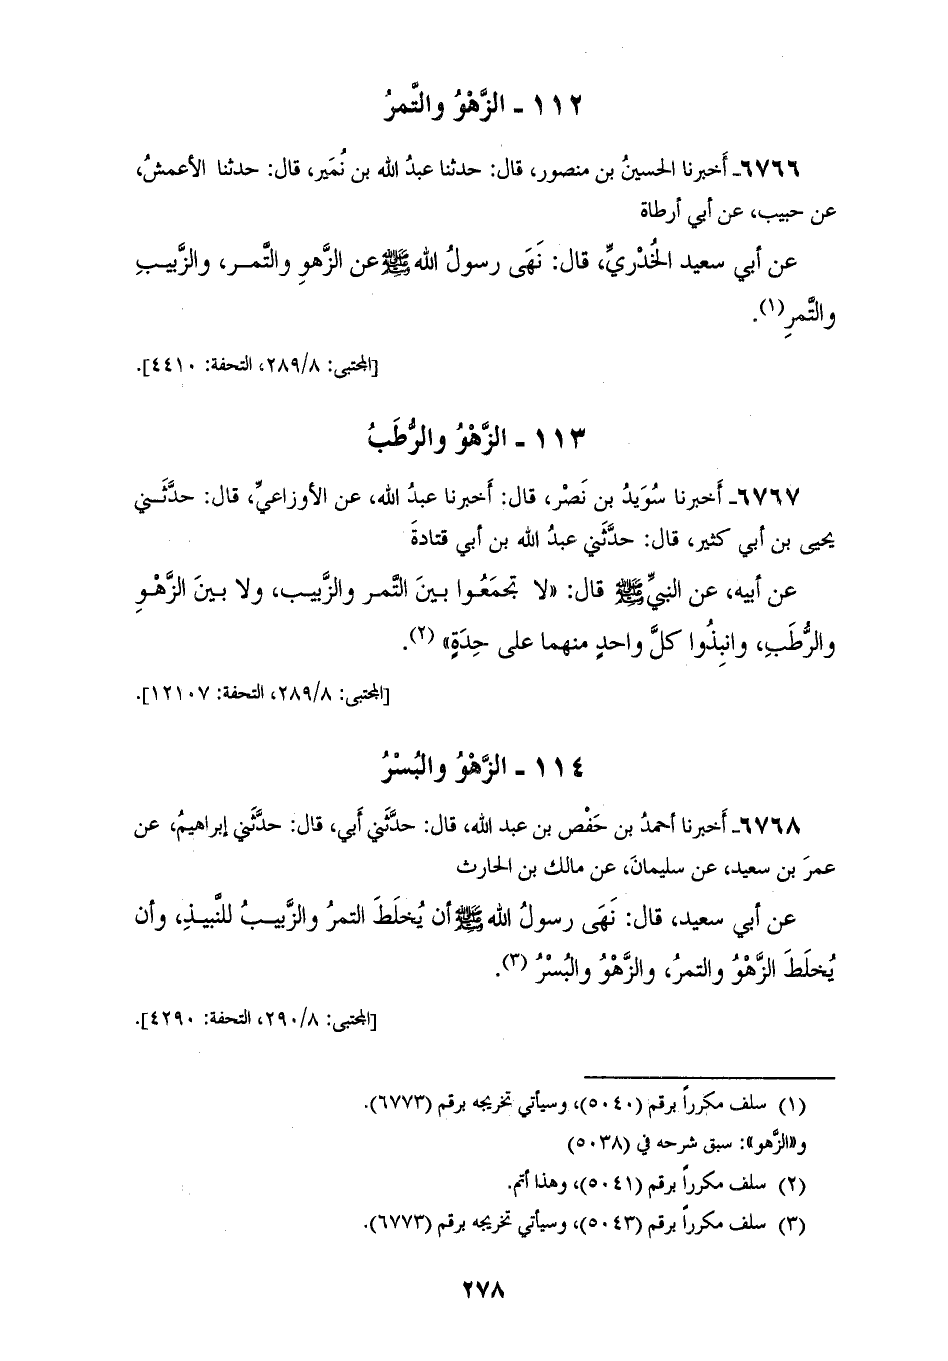 ١١٢ - الزَّهْوُ والتَّمرُ
٦٧٦٦- أَخبرنا الحسينُ بن منصور، قال: حدثنا عبدُ الله بن نُمَير، قال: حدثنا الأعمشُ،
عن حبيب، عن أبي أرطاة
عن أبي سعيد الخُدْريِّ، قال: نَهَى رسولُ الله ﷺ عن الزَّهوِ والتَّمر، والزَّبيبِ
والتَّمرِ(١).
[المجتبى: ٢٨٩/٨، التحفة: ٤٤١٠].
١١٣ - الزَّهْوُ والرُّطَبُ
٦٧٦٧- أَخبرنا سُوَيدُ بن نَصْر، قال: أَخبرنا عبدُ الله، عن الأوزاعيِّ، قال: حدَّثَني
يحيى بن أبي كثير، قال: حدَّثَني عبدُ الله بن أبي قتادةَ
عن أبيه، عن النبيِّ ﷺ قال: «لا تجمَعُوا بينَ التَّمر والزَّبيب، ولا بينَ الزَّهْوِ
والرُّطَبِ، وانبِذُوا كلَّ واحدٍ منهما على حِدَةٍ» (٢).
[المجتبى: ٢٨٩/٨، التحفة: ١٢١٠٧].
١١٤ - الزَّهْوُ والبُسْرُ
٦٧٦٨- أَخبرنا أحمدُ بن حَفْص بن عبد الله، قال: حدَّثَني أَبي، قال: حدَّثَني إبراهيمُ، عن
عمرَ بن سعيد، عن سليمانَ، عن مالك بن الحارث
عن أبي سعيد، قال: نَهَى رسولُ الله ﷺ أن يُخلَطَ التمرُ والزَّبيبُ للنَّبيذِ، وأن
يُخلَطَ الزَّهْوُ والتمرُ، والزَّهْوُ والبُسْرُ (٣).
[المجتبى: ٢٩٠/٨، التحفة: ٤٢٩٠].
(١) سلف مكرراً برقم (٥٠٤٠)، وسيأتي تخريجه برقم (٦٧٧٣).
و«الزَّهو»: سبق شرحه في (٥٠٣٨)
(٢) سلف مكرراً برقم (٥٠٤١)، وهذا أتم.
(٣) سلف مكرراً برقم (٥٠٤٣)، وسيأتي تخريجه برقم (٦٧٧٣).
٢٧٨